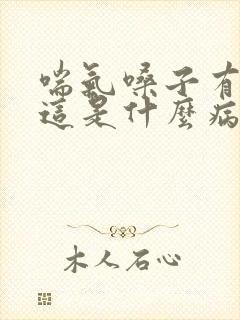 喘氣嗓子有
這是什麼病
木人石心